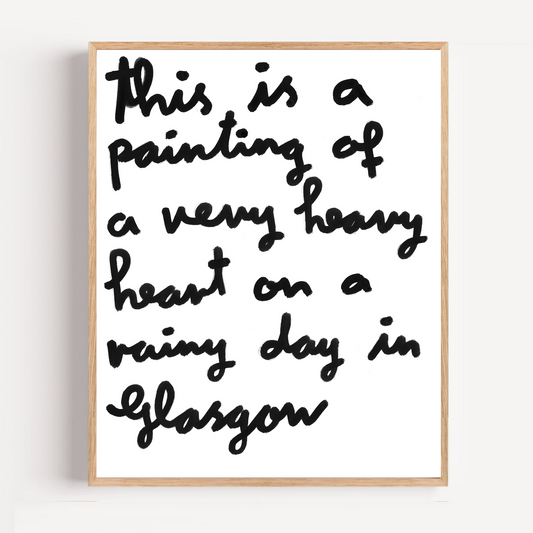 this is a
painting of
a very heavy
heart on a
rainy day in
Glasgow